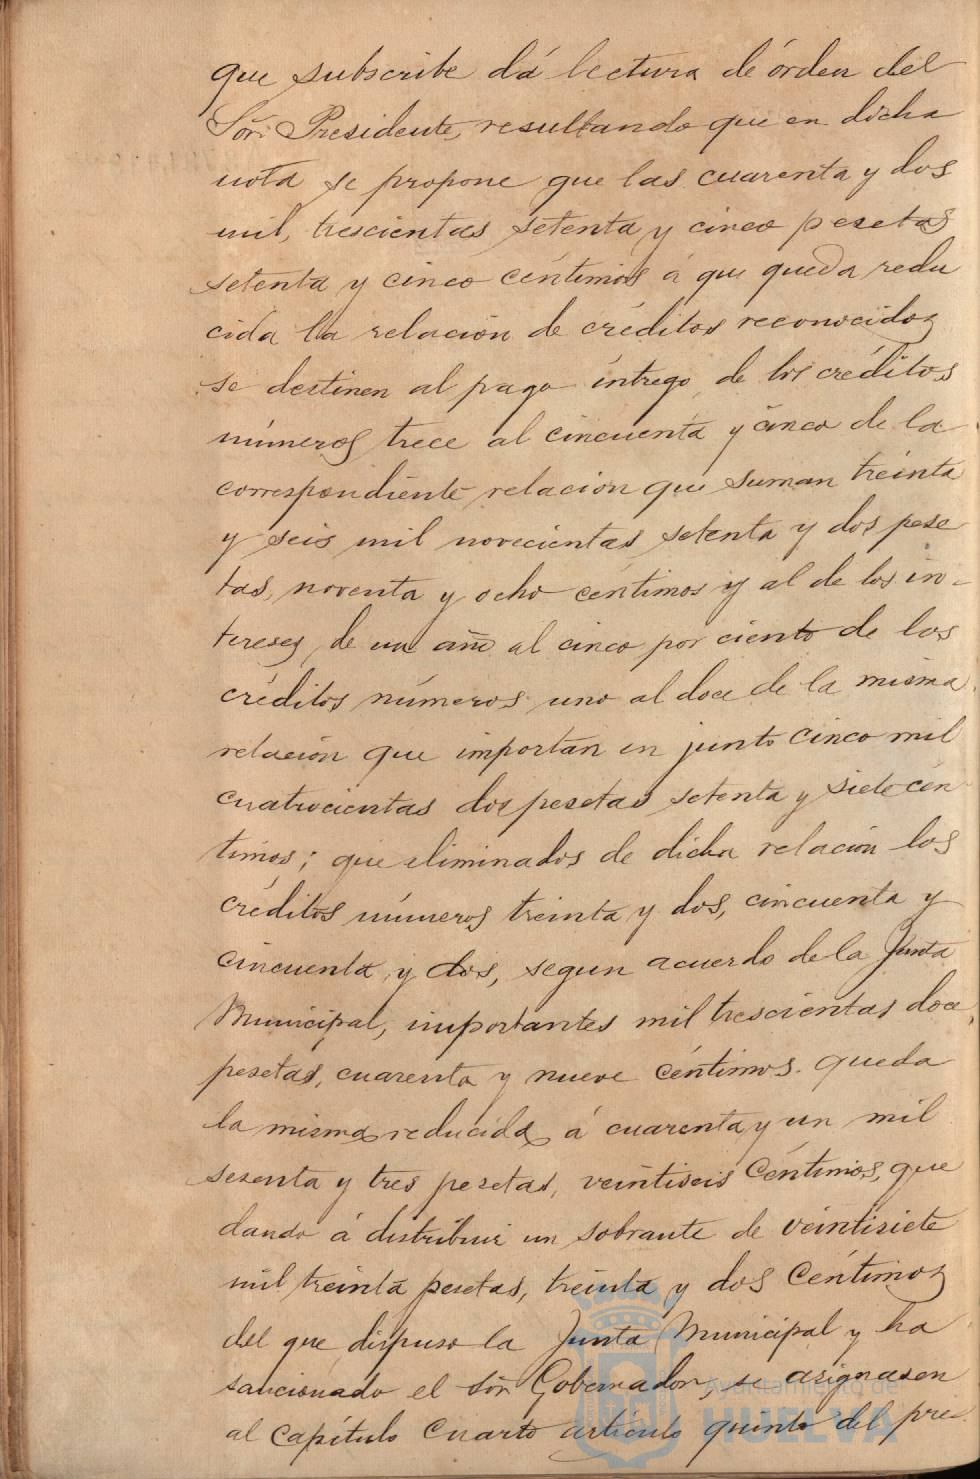 que subscribe dá lectura de órden del
Sõr. Presidente, resultando que en dicha
nota se propone que las cuarenta y dos
mil, trescientas setenta y cinco pesetas
setenta y cinco céntimos á que queda redu
cida la relación de créditos reconocidos
se destinen al pago íntrego de los créditos
números trece al cincuenta y cinco de la
correspondiente relación que suman treinta
y seis mil novecientas setenta y dos pese
tas, noventa y ocho céntimos y al de los in-
tereses de un año al cinco por ciento de los
créditos números uno al doce de la misma
relación que importan en junto cinco mil
cuatrocientas dos pesetas setenta y siete cén
timos; que eliminados de dicha relación los
créditos números treinta y dos, cincuenta y
cincuenta y dos, segun acuerdo de la Junta
Municipal, importantes mil trescientas doce
pesetas, cuarenta y nueve céntimos. queda
la misma reducida á cuarenta y un mil
sesenta y tres pesetas, veintiseis Céntimos, que
dando á distribuir un sobrante de veintisiete
mil treinta pesetas, treinta y dos Céntimos
del que dispuso la Junta Municipal y ha
sancionado el Sõr Gobernador, se asignasen
al Capítulo Cuarto artículo quinto del pre
Ayuntamiento de
HUELVA